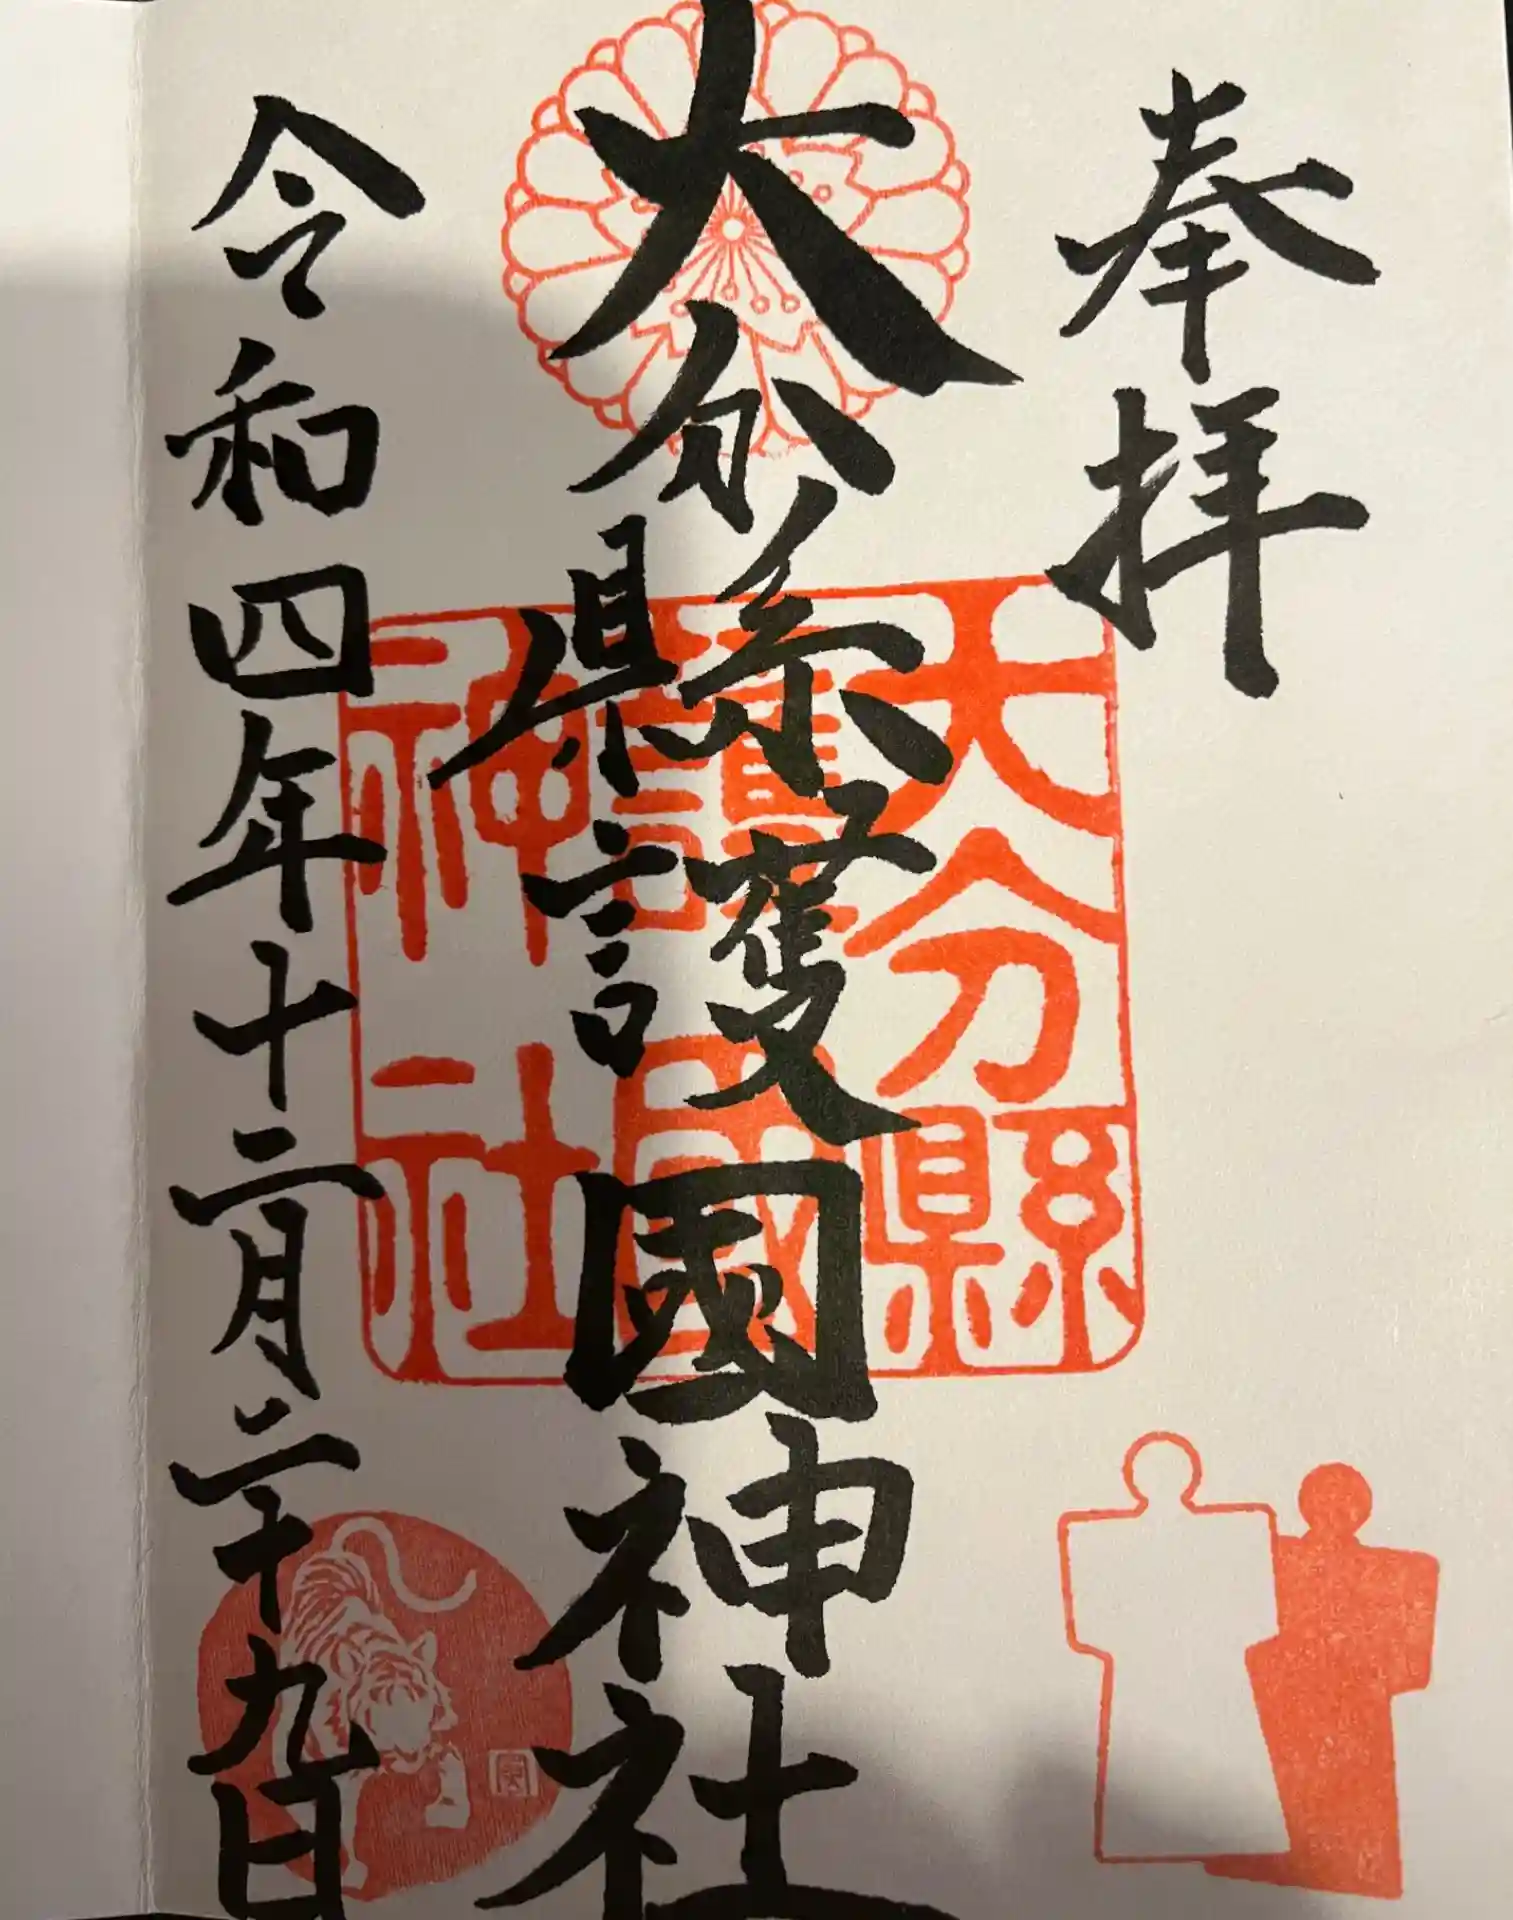 奉拝
大分縣護國神社
大分縣
護國
神社
令和四年十二月二十九日